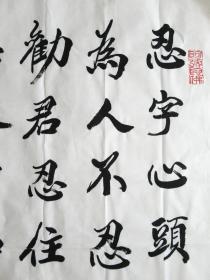 忍字心頭
為人不忍
勸君忍住